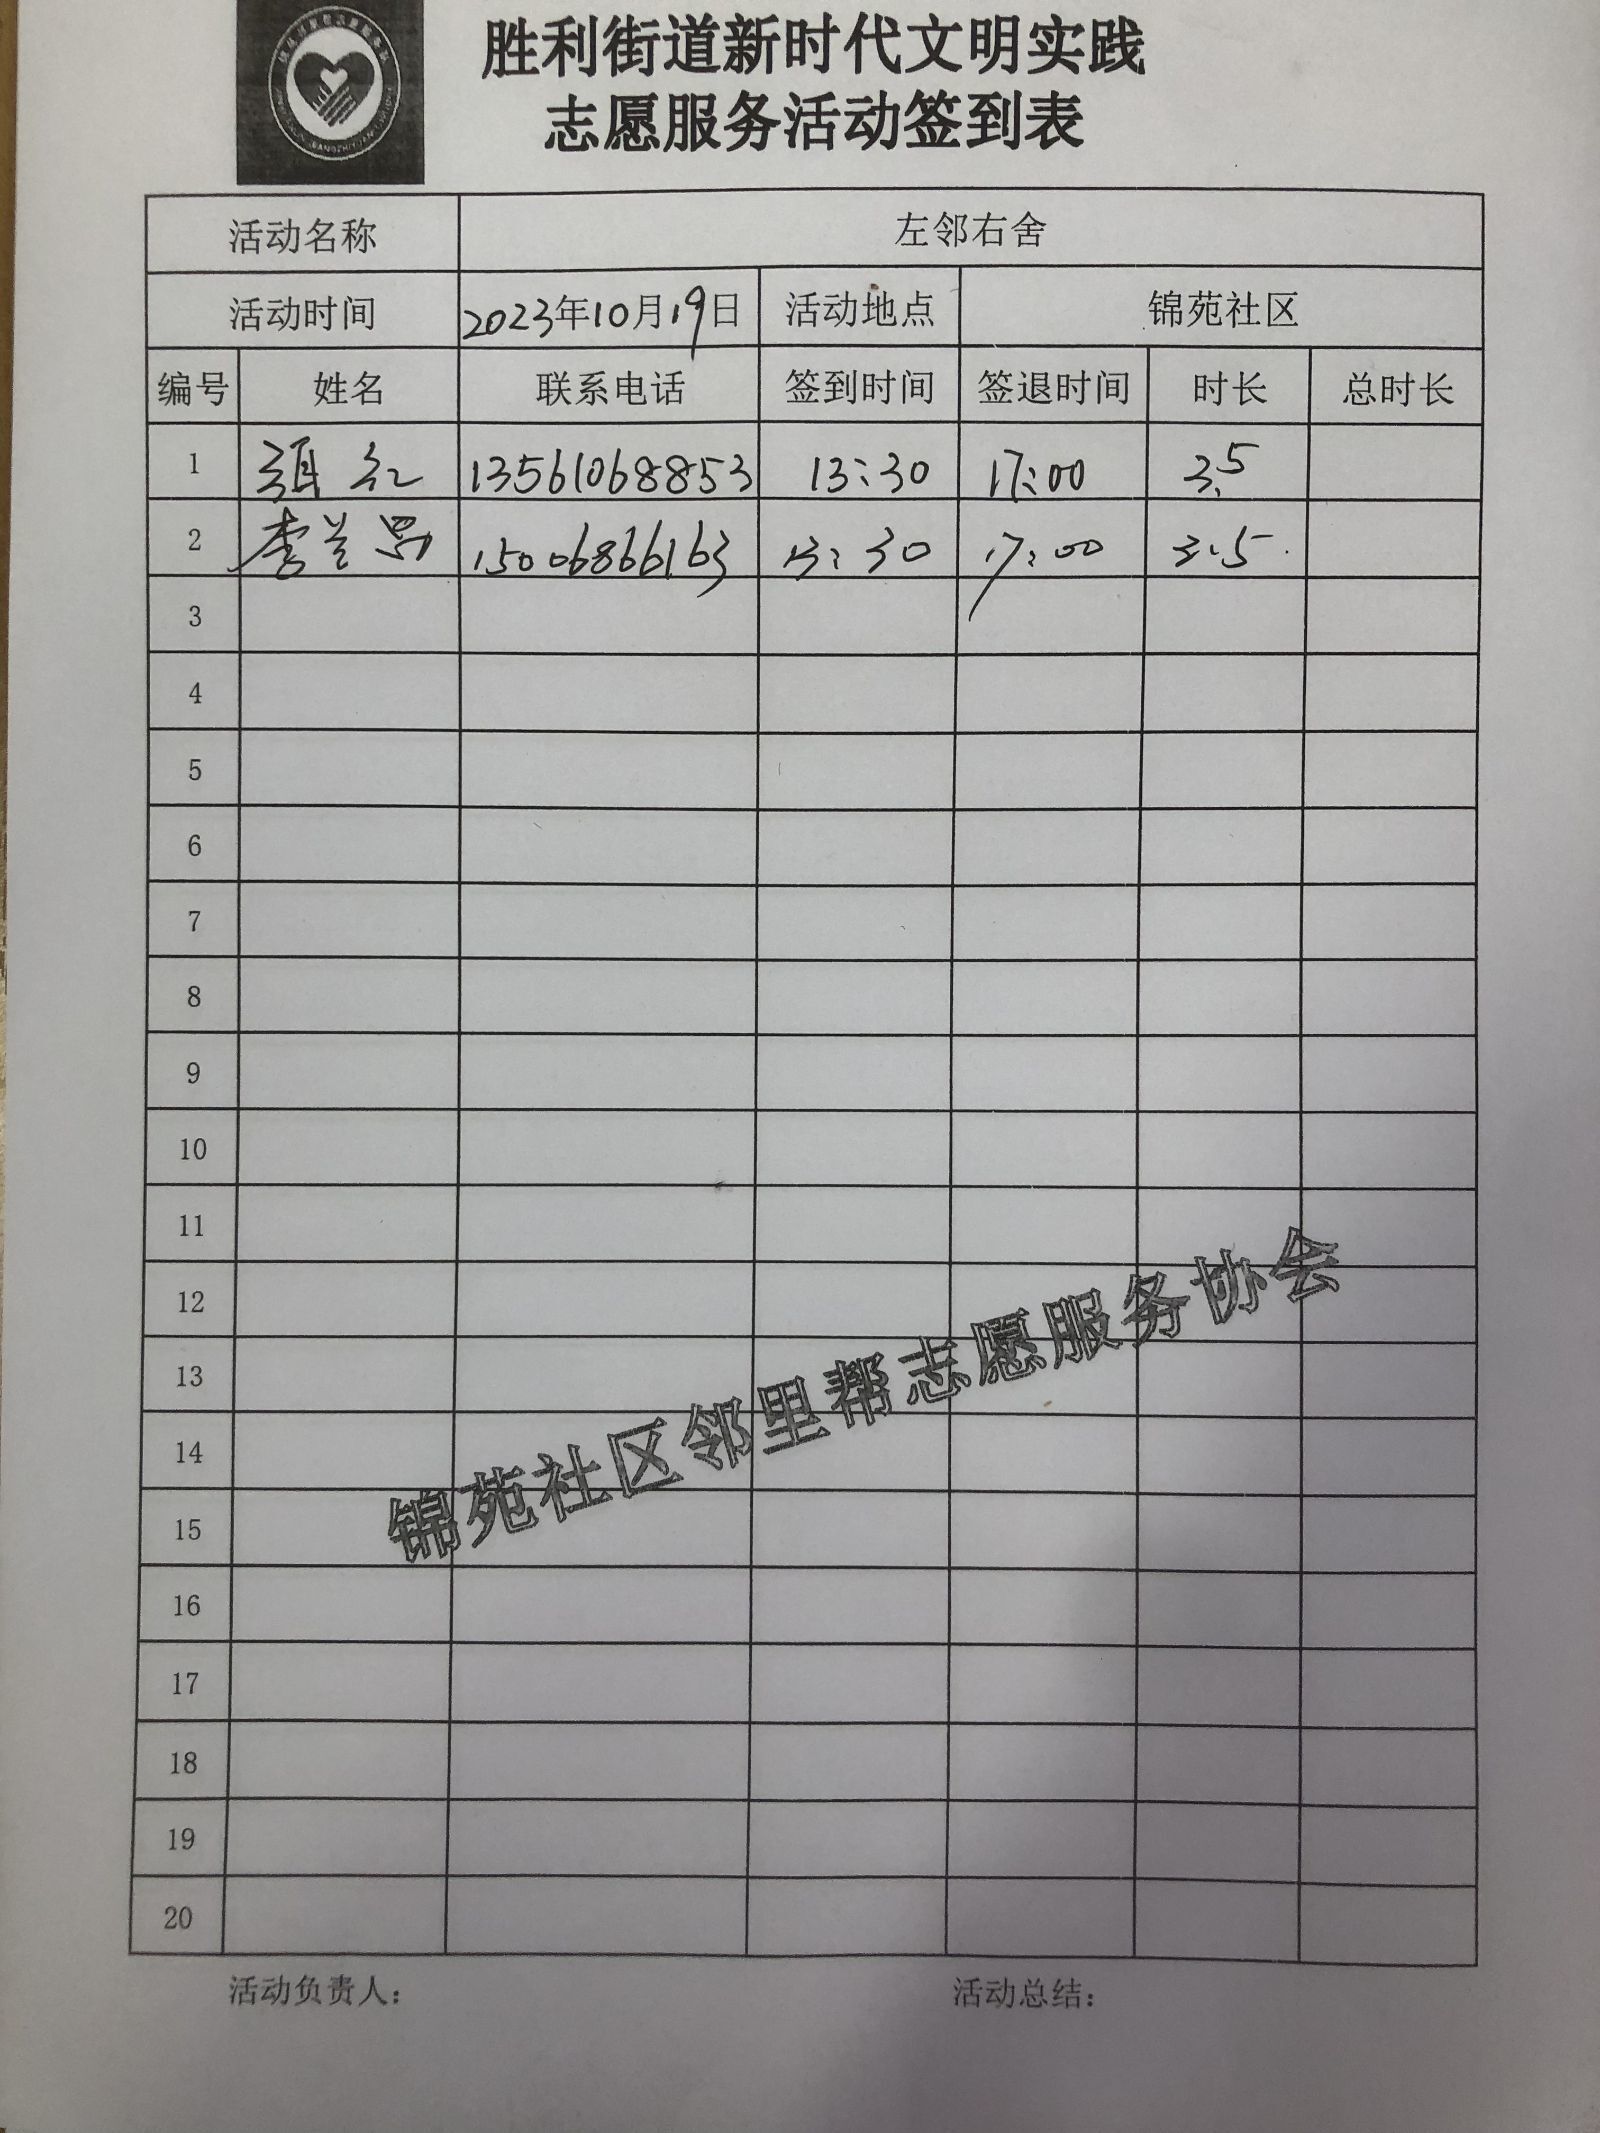 胜利街道新时代文明实践
志愿服务活动签到表
活动名称 左邻右舍
活动时间 2023年10月19日 活动地点 锦苑社区
编号 姓名 联系电话 签到时间 签退时间 时长 总时长
1 红 13561068853 13:30 17:00 3.5
2 李兰 15006866163 13:30 17:00 3.5
3
4
5
6
7
8
9
10
11
12
13
14
15
16
17
18
19
20
锦苑社区邻里帮志愿服务协会
活动负责人: 活动总结: